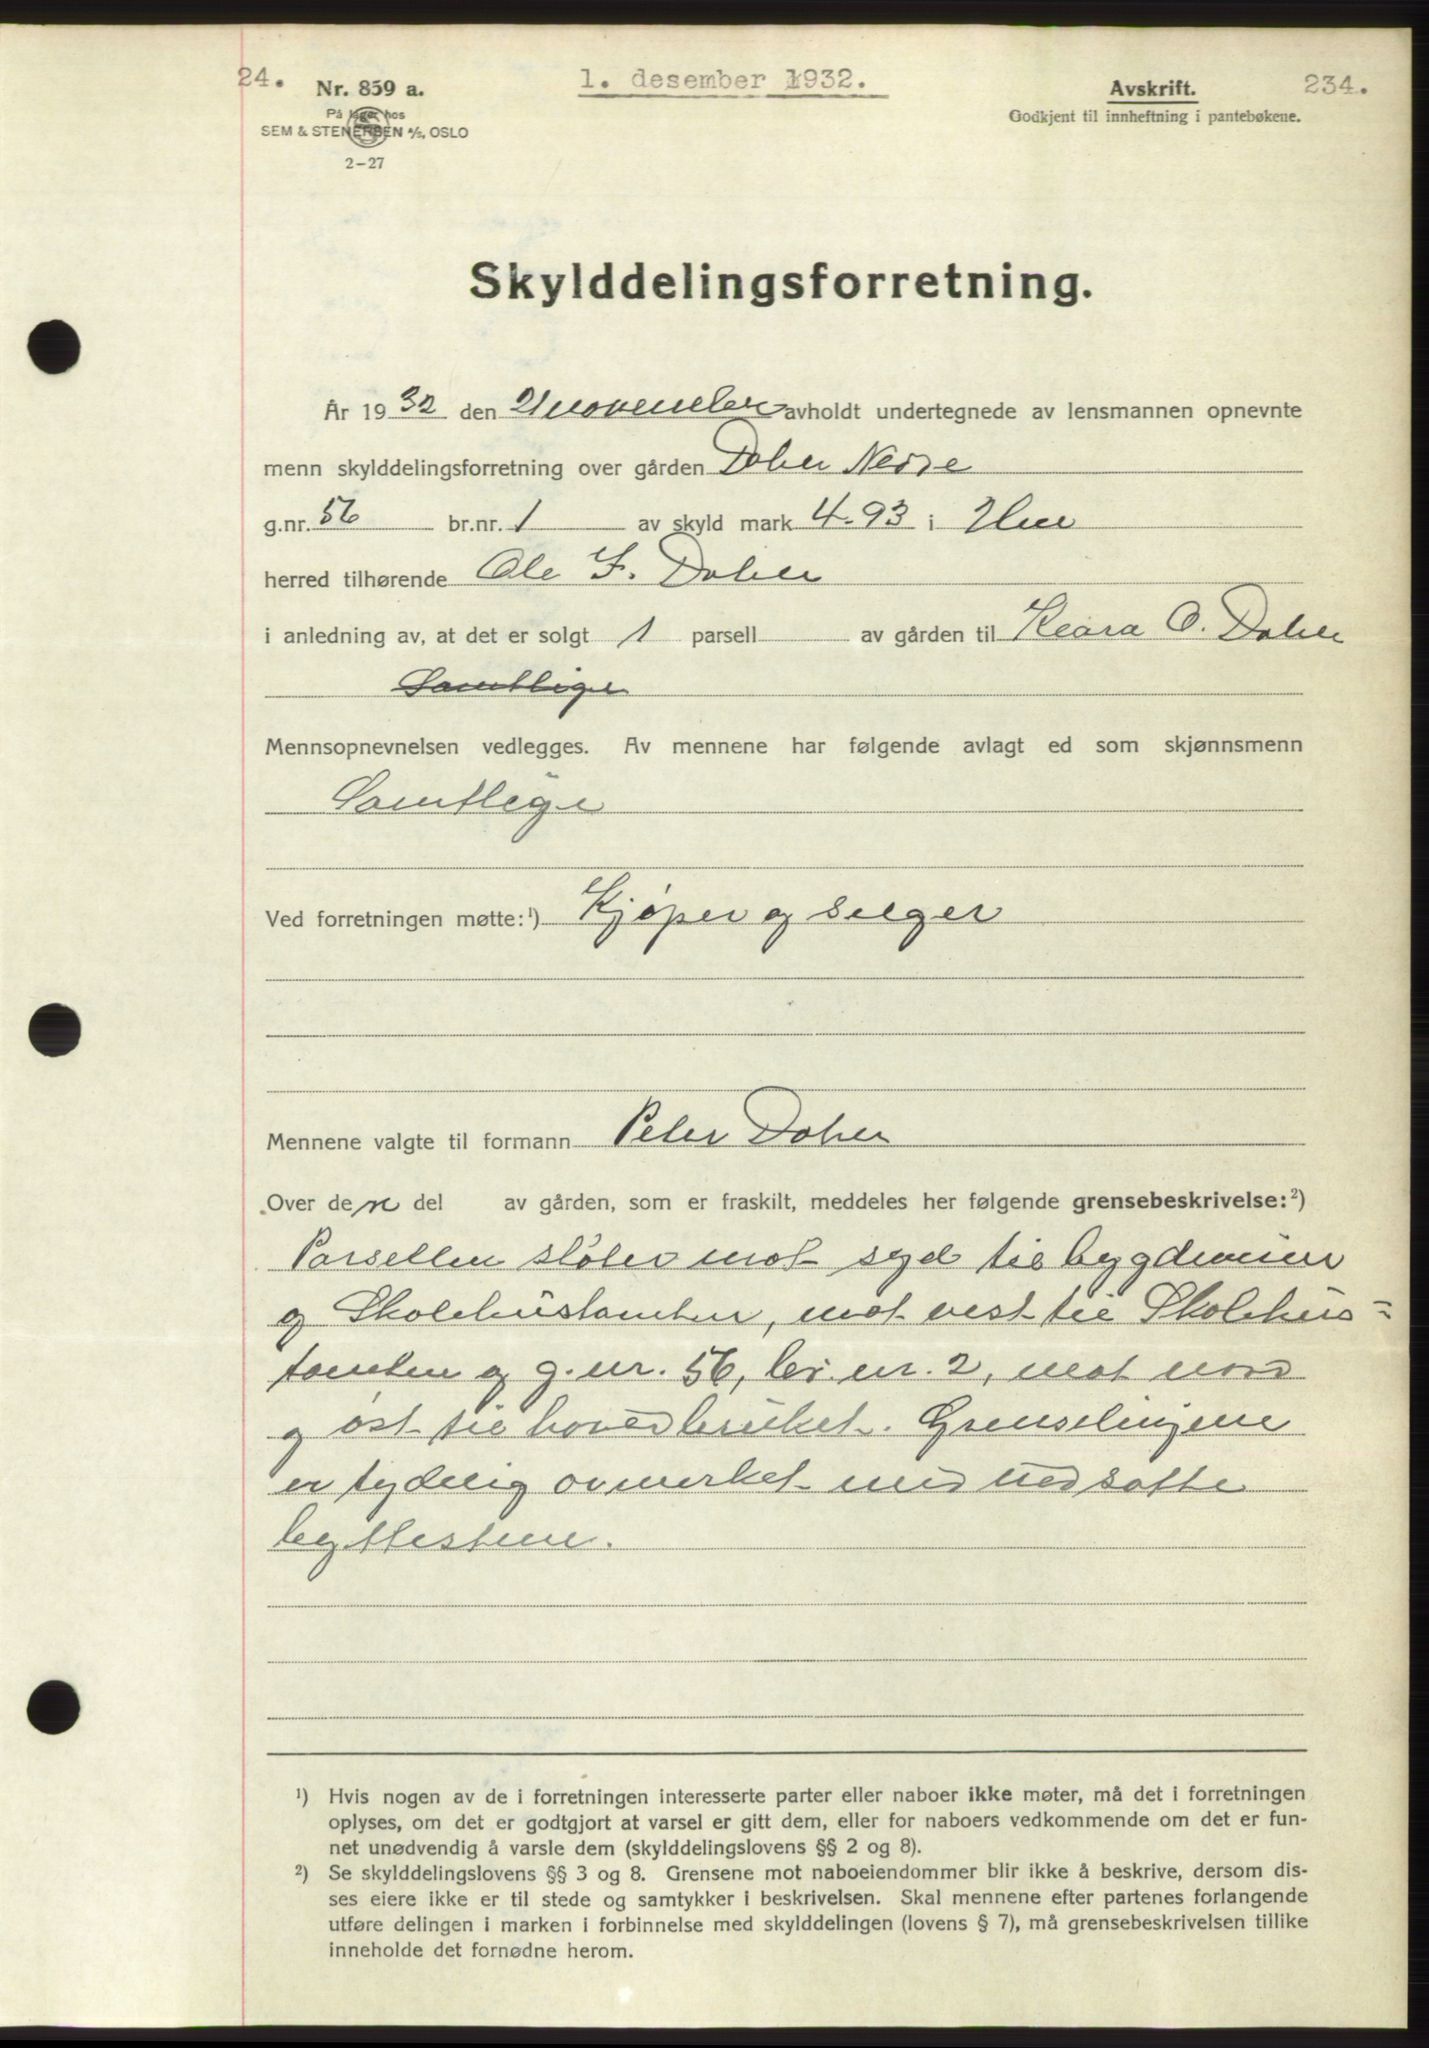 24.
Nr. 859 a.
På lager hos
SEM & STENERSEN A/S, OSLO
2-27
1. desember 1932.
Avskrift.
Godkjent til innheftning i pantebøkene.
234.
Skylddelingsforretning.
År 1932 den 21 november avholdt undertegnede av lensmannen opnevnte
menn skylddelingsforretning over gården Daher Nesse
g.nr. 56 br.nr. 1 av skyld mark 4-93 i
herred tilhørende Ole F. Daher
i anledning av, at det er solgt 1 parsell av gården til Klara O. Daher
Samtlige
Mennsopnevnelsen vedlegges. Av mennene har følgende avlagt ed som skjønnsmenn
Samtlige
Ved forretningen møtte:¹) Kjøper og selger
Mennene valgte til formann Peter Daher
Over den del av gården, som er fraskilt, meddeles her følgende grensebeskrivelse:²)
Parsellen støter mot syd til bygdeveien
og Skolehustomten, mot vest til Skolehus=
tomten og g.nr. 56, br.nr. 2, mot nord
og øst til hovedbruket. Grenselinjene
er tydelig avmerket med nedsatte
byttestene.
¹) Hvis nogen av de i forretningen interesserte parter eller naboer ikke møter, må det i forretningen
oplyses, om det er godtgjort at varsel er gitt dem, eller for naboers vedkommende om det er fun-
net unødvendig å varsle dem (skylddelingslovens §§ 2 og 8).
²) Se skylddelingslovens §§ 3 og 8. Grensene mot naboeiendommer blir ikke å beskrive, dersom dis-
ses eiere ikke er til stede og samtykker i beskrivelsen. Skal mennene efter partenes forlangende
utføre delingen i marken i forbinnelse med skylddelingen (lovens § 7), må grensebeskrivelsen tillike
inneholde det fornødne herom.